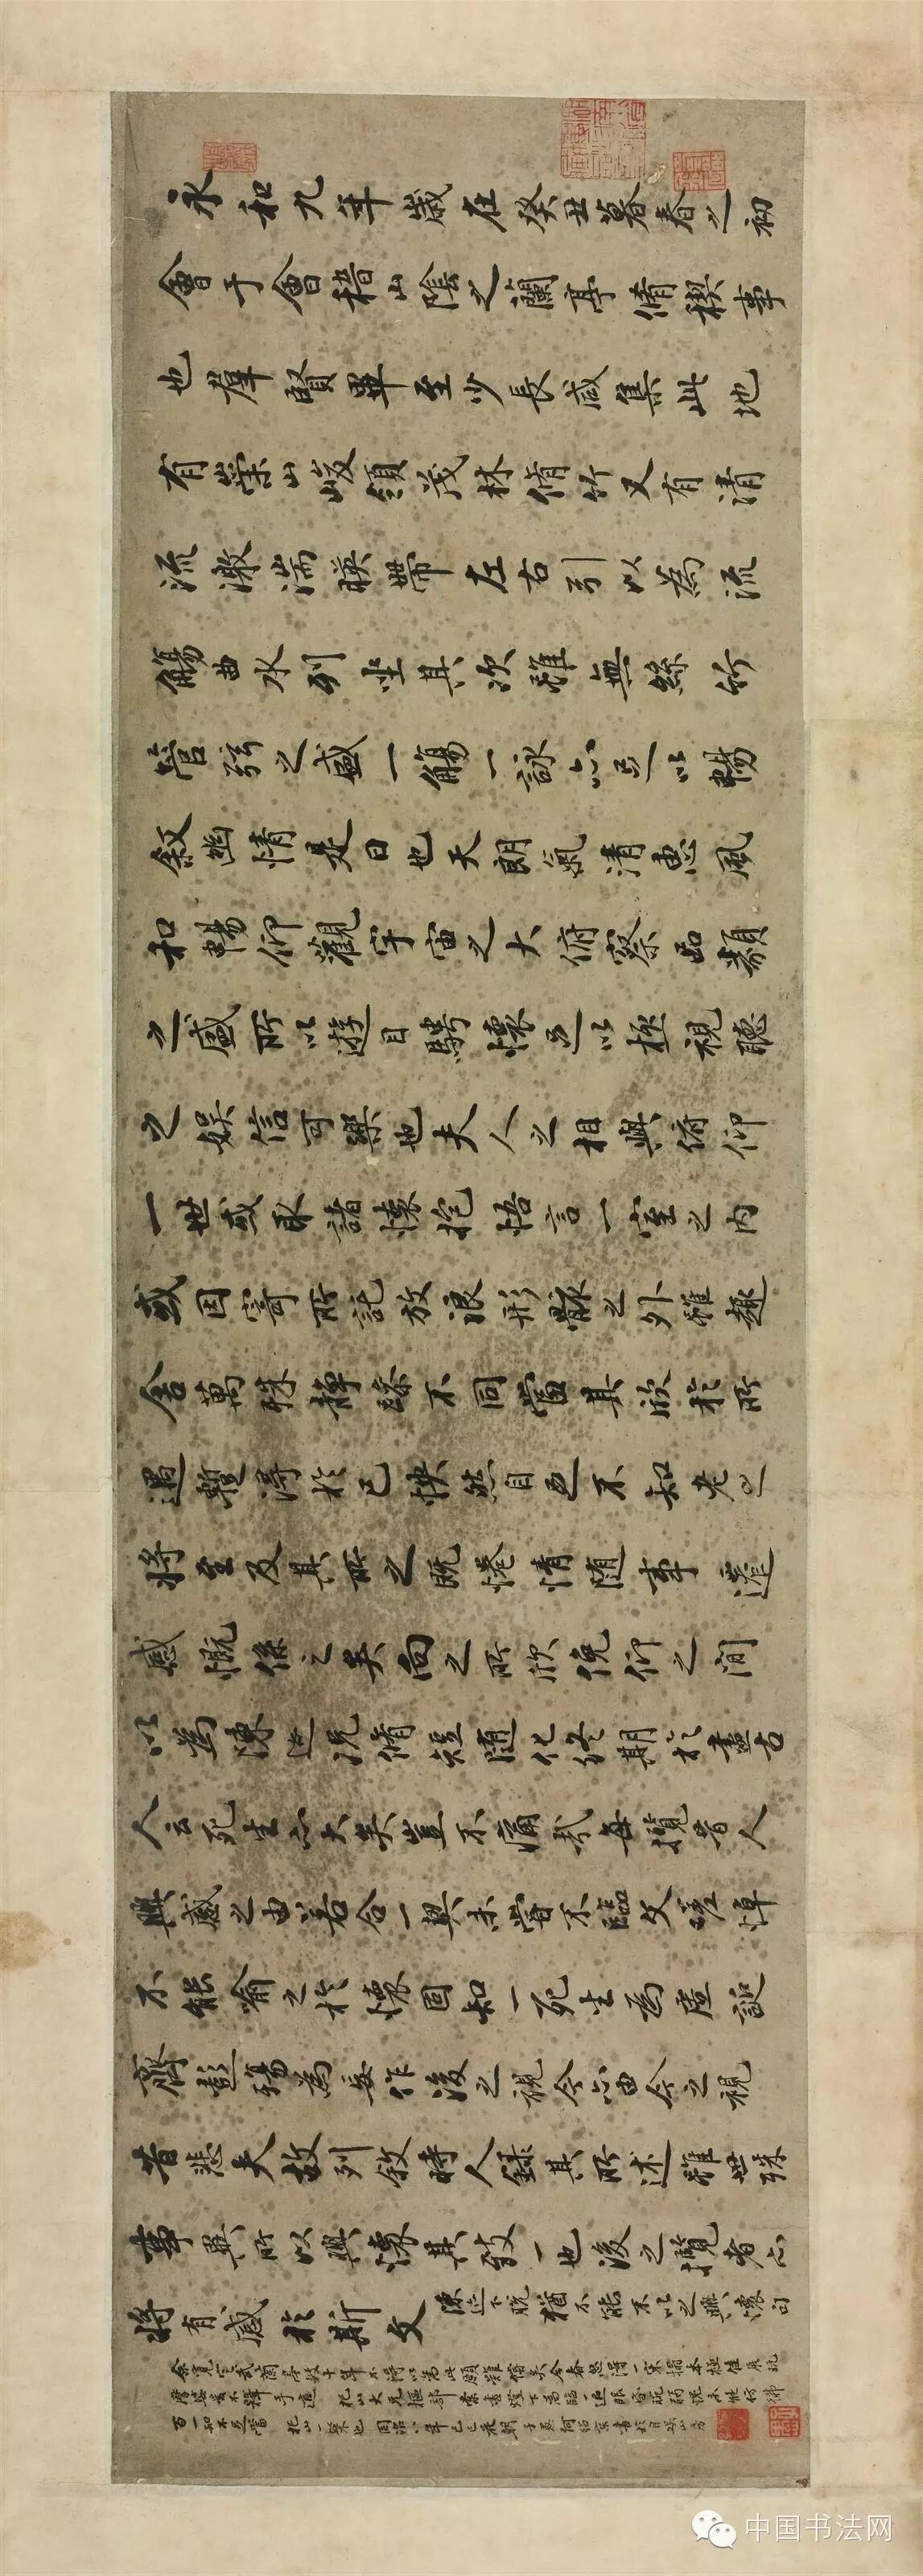 永和九年歲在癸丑暮春之初
會于會稽山陰之蘭亭脩稧事
也羣賢畢至少長咸集此地
有崇山峻領茂林脩竹又有清
流激湍暎帶左右引以為流
觴曲水列坐其次雖無絲竹
管弦之盛一觴一詠亦足以暢
敘幽情是日也天朗氣清惠風
和暢仰觀宇宙之大俯察品類
之盛所以遊目騁懷足以極視聽
之娛信可樂也夫人之相與俯仰
一世或取諸懷抱悟言一室之內
或因寄所託放浪形骸之外雖趣
舍萬殊靜躁不同當其欣於所
遇暫得於己怏然自足不知老之
將至及其所之既惓情隨事遷
感慨係之矣向之所欣俛仰之間
以為陳迹況脩短隨化終期於盡古
人云死生亦大矣豈不痛哉每攬昔人
興感之由若合一契未嘗不臨文嗟悼
不能喻之於懷固知一死生為虛誕
齊彭殤為妄作後之視今亦由今之視
昔悲夫故列敘時人錄其所述雖世殊
事異所以興懷其致一也後之攬者亦
將有感於斯文
陳迹下脫猶不能不以之興懷句
余覓定武蘭亭數十年不得以為此願難償矣今春忽得一宋搨本極佳
同治八年己巳
何紹京
中国书法网